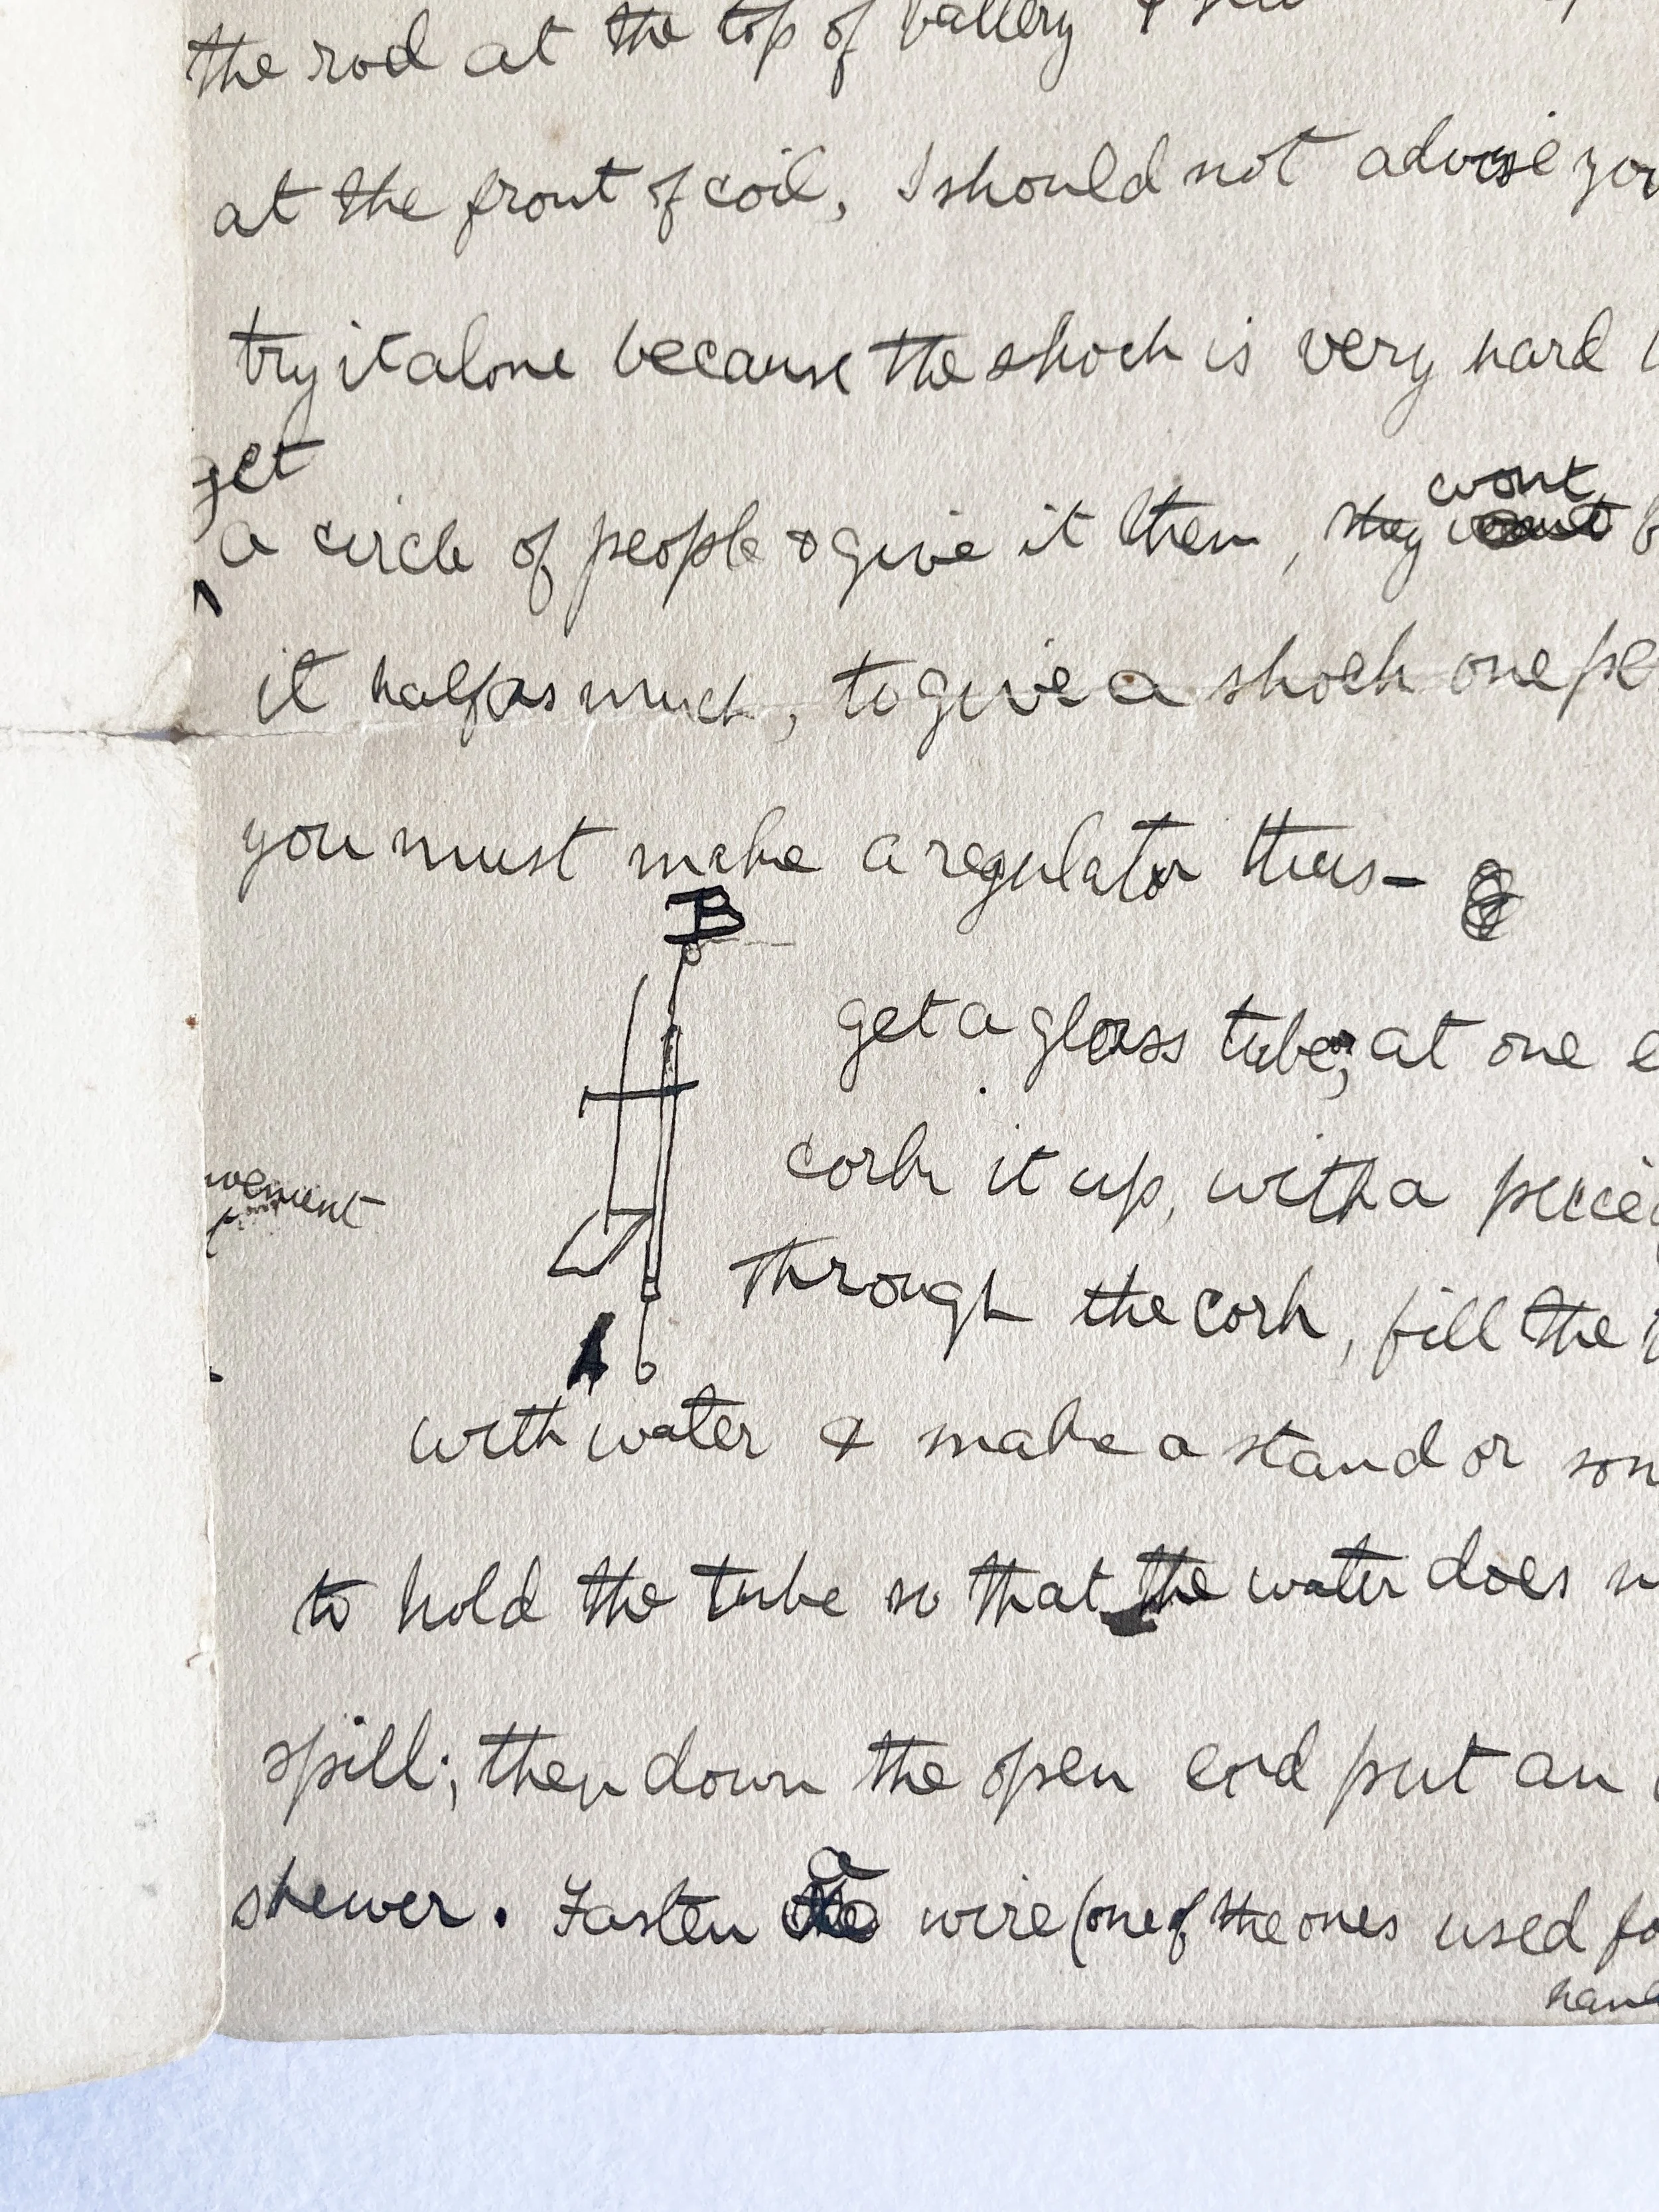 the rod at the top of battery &
at the front of coil, I should not advise you
try it alone because the shock is very hard
get
a circle of people & give it them, they wont
it half as much, to give a shock one pe
you must make a regulator thus-
B
get a glass tube, at one e
cork it up, with a piece
through the cork, fill the
A
with water & make a stand or som
to hold the tube so that the water does n
spill; then down the open end put an
skewer. Fasten a wire (one of the ones used fo
hand